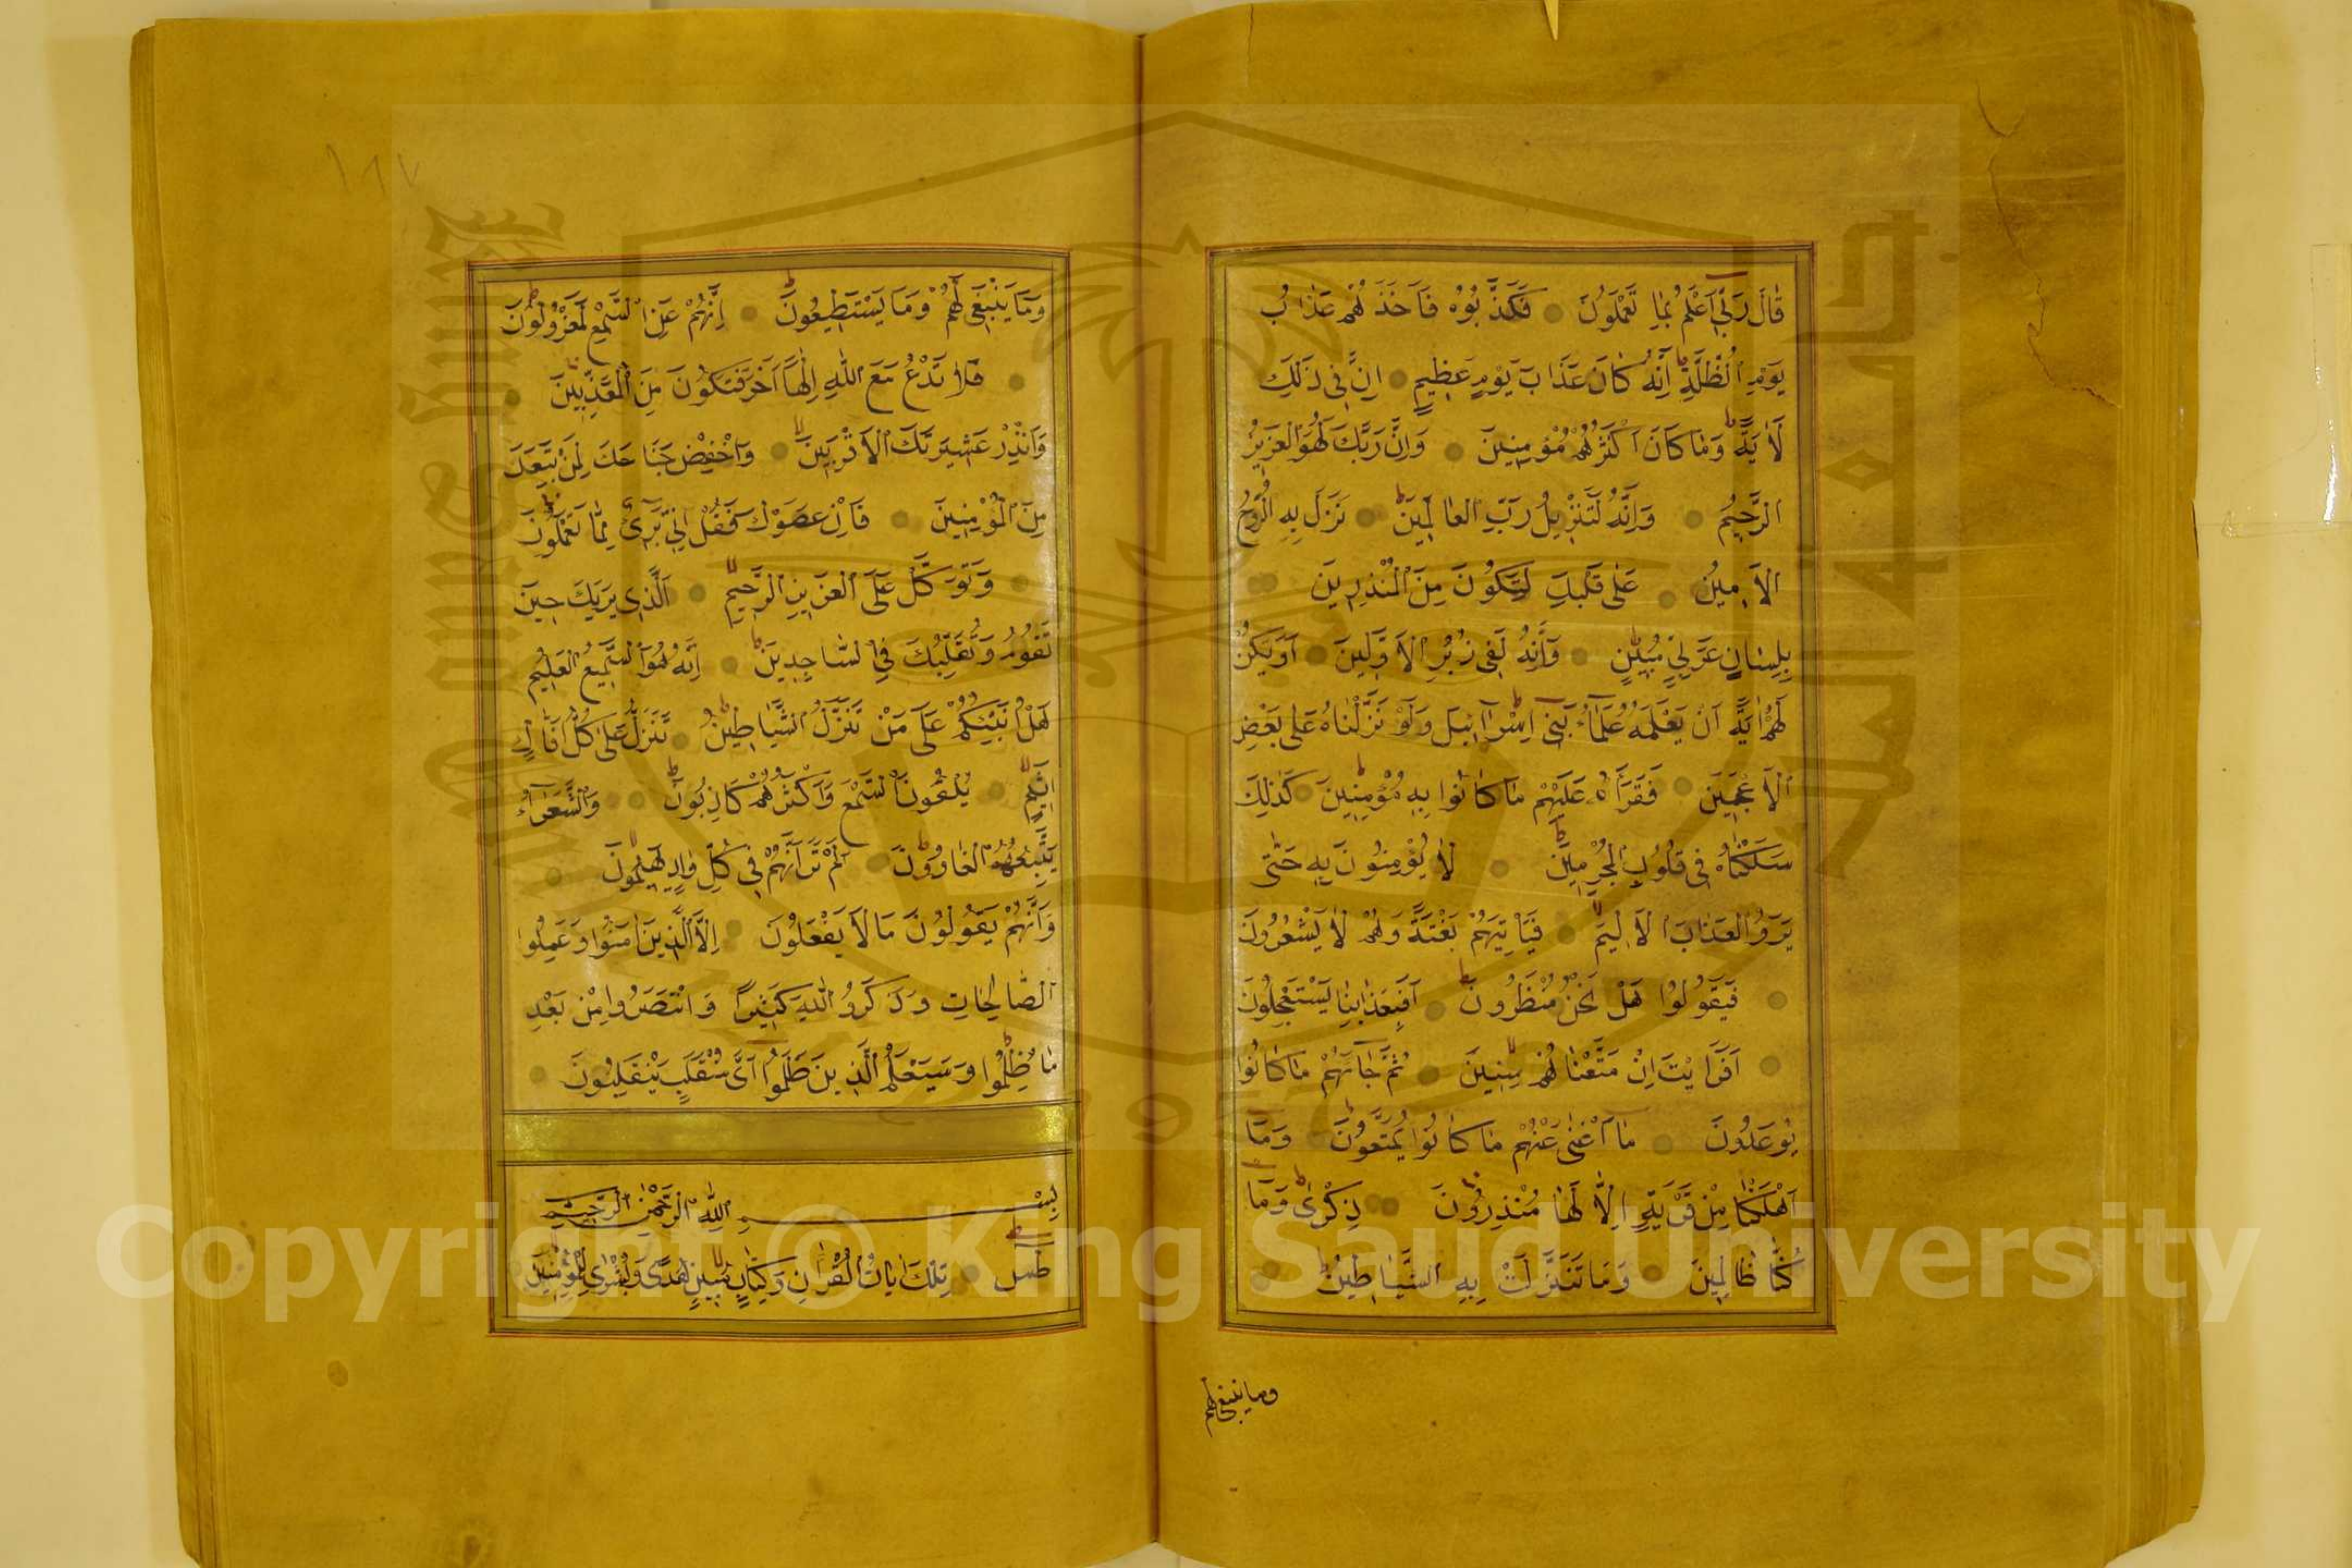 قَالَ رَبِّي أَعْلَمُ بِمَا تَعْمَلُونَ فَكَذَّبُوهُ فَأَخَذَهُمْ عَذَابُ
يَوْمِ الظُّلَّةِ إِنَّهُ كَانَ عَذَابَ يَوْمٍ عَظِيمٍ إِنَّ فِي ذَلِكَ
لَآيَةً وَمَا كَانَ أَكْثَرُهُمْ مُؤْمِنِينَ وَإِنَّ رَبَّكَ لَهُوَ الْعَزِيزُ
الرَّحِيمُ وَإِنَّهُ لَتَنْزِيلُ رَبِّ الْعَالَمِينَ نَزَلَ بِهِ الرُّوحُ
الْأَمِينُ عَلَى قَلْبِكَ لِتَكُونَ مِنَ الْمُنْذِرِينَ
بِلِسَانٍ عَرَبِيٍّ مُبِينٍ وَإِنَّهُ لَفِي زُبُرِ الْأَوَّلِينَ أَوَلَمْ يَكُنْ
لَهُمْ آيَةً أَنْ يَعْلَمَهُ عُلَمَاءُ بَنِي إِسْرَائِيلَ وَلَوْ نَزَّلْنَاهُ عَلَى بَعْضِ
الْأَعْجَمِينَ فَقَرَأَهُ عَلَيْهِمْ مَا كَانُوا بِهِ مُؤْمِنِينَ كَذَلِكَ
سَلَكْنَاهُ فِي قُلُوبِ الْمُجْرِمِينَ لَا يُؤْمِنُونَ بِهِ حَتَّى
يَرَوُا الْعَذَابَ الْأَلِيمَ فَيَأْتِيَهُمْ بَغْتَةً وَهُمْ لَا يَشْعُرُونَ
فَيَقُولُوا هَلْ نَحْنُ مُنْظَرُونَ أَفَبِعَذَابِنَا يَسْتَعْجِلُونَ
أَفَرَأَيْتَ إِنْ مَتَّعْنَاهُمْ سِنِينَ ثُمَّ جَاءَهُمْ مَا كَانُوا
يُوعَدُونَ مَا أَغْنَى عَنْهُمْ مَا كَانُوا يُمَتَّعُونَ وَمَا
أَهْلَكْنَا مِنْ قَرْيَةٍ إِلَّا لَهَا مُنْذِرُونَ ذِكْرَى وَمَا
كُنَّا ظَالِمِينَ وَمَا تَنَزَّلَتْ بِهِ الشَّيَاطِينُ
وما ينبغي لهم
١٨٧
وَمَا يَنْبَغِي لَهُمْ وَمَا يَسْتَطِيعُونَ إِنَّهُمْ عَنِ السَّمْعِ لَمَعْزُولُونَ
فَلَا تَدْعُ مَعَ اللَّهِ إِلَهًا آخَرَ فَتَكُونَ مِنَ الْمُعَذَّبِينَ
وَأَنْذِرْ عَشِيرَتَكَ الْأَقْرَبِينَ وَاخْفِضْ جَنَاحَكَ لِمَنِ اتَّبَعَكَ
مِنَ الْمُؤْمِنِينَ فَإِنْ عَصَوْكَ فَقُلْ إِنِّي بَرِيءٌ مِمَّا تَعْمَلُونَ
وَتَوَكَّلْ عَلَى الْعَزِيزِ الرَّحِيمِ الَّذِي يَرَاكَ حِينَ
تَقُومُ وَتَقَلُّبَكَ فِي السَّاجِدِينَ إِنَّهُ هُوَ السَّمِيعُ الْعَلِيمُ
هَلْ أُنَبِّئُكُمْ عَلَى مَنْ تَنَزَّلُ الشَّيَاطِينُ تَنَزَّلُ عَلَى كُلِّ أَفَّاكٍ
أَثِيمٍ يُلْقُونَ السَّمْعَ وَأَكْثَرُهُمْ كَاذِبُونَ وَالشُّعَرَاءُ
يَتَّبِعُهُمُ الْغَاوُونَ أَلَمْ تَرَ أَنَّهُمْ فِي كُلِّ وَادٍ يَهِيمُونَ
وَأَنَّهُمْ يَقُولُونَ مَا لَا يَفْعَلُونَ إِلَّا الَّذِينَ آمَنُوا وَعَمِلُوا
الصَّالِحَاتِ وَذَكَرُوا اللَّهَ كَثِيرًا وَانْتَصَرُوا مِنْ بَعْدِ
مَا ظُلِمُوا وَسَيَعْلَمُ الَّذِينَ ظَلَمُوا أَيَّ مُنْقَلَبٍ يَنْقَلِبُونَ
بِسْمِ اللَّهِ الرَّحْمَنِ الرَّحِيمِ
طس تِلْكَ آيَاتُ الْقُرْآنِ وَكِتَابٍ مُبِينٍ هُدًى وَبُشْرَى لِلْمُؤْمِنِينَ
Copyright © King Saud University
جامعة الملك سعود
1957